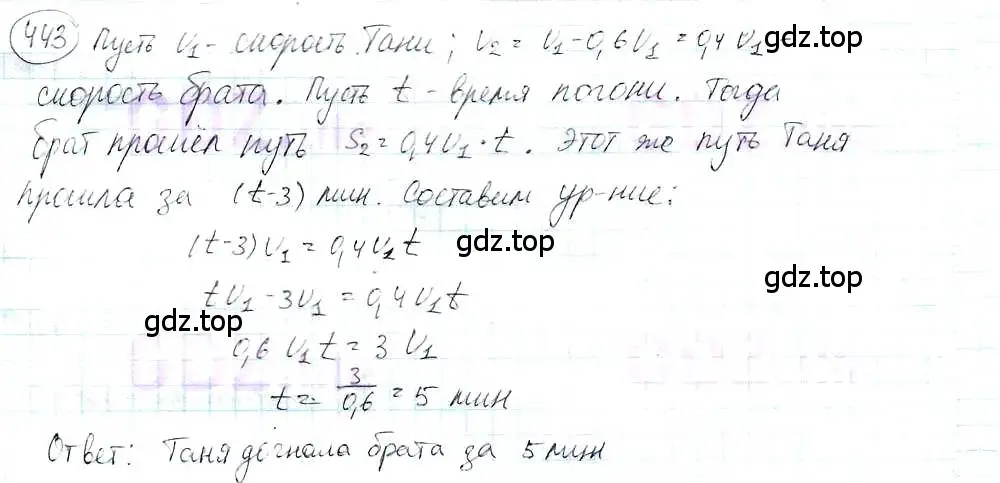 443 Пусть V₁ - скорость Тани; V₂ = V₁-0,6V₁ = 0,4V₁ -
скорость брата. Пусть t - время погони. Тогда
брат прошёл путь S₂ = 0,4V₁·t. Этот же путь Таня
прошла за (t-3) мин. Составим ур-ние:
(t-3)V₁ = 0,4V₁t gdz.top
gdz.top
tV₁-3V₁ = 0,4V₁t
gdz.top
0,6 V₁t = 3 V₁
t = 3/0,6 = 5 мин
Ответ: Таня догнала брата за 5 мин